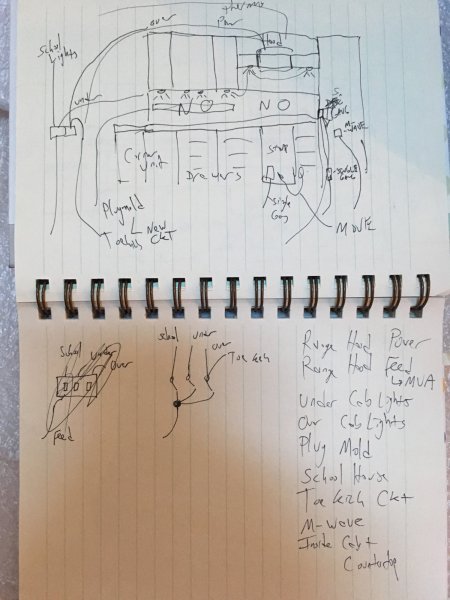 over
Hood
School
Lights
under
N O
N O
M-WAVE
Corner
Unit
Drawers
Stove
Single
Gang
MOVE
Plugmold
New
Toekick CKT
School
under
over
Feed
School
under
over
Toe kick
Range Hood Power
Range Hood Feed
MUA
Under Cab Lights
Over Cab Lights
Plug Mold
School House
Toe Kick Cket
M-wave
Inside Cab +
Countertop